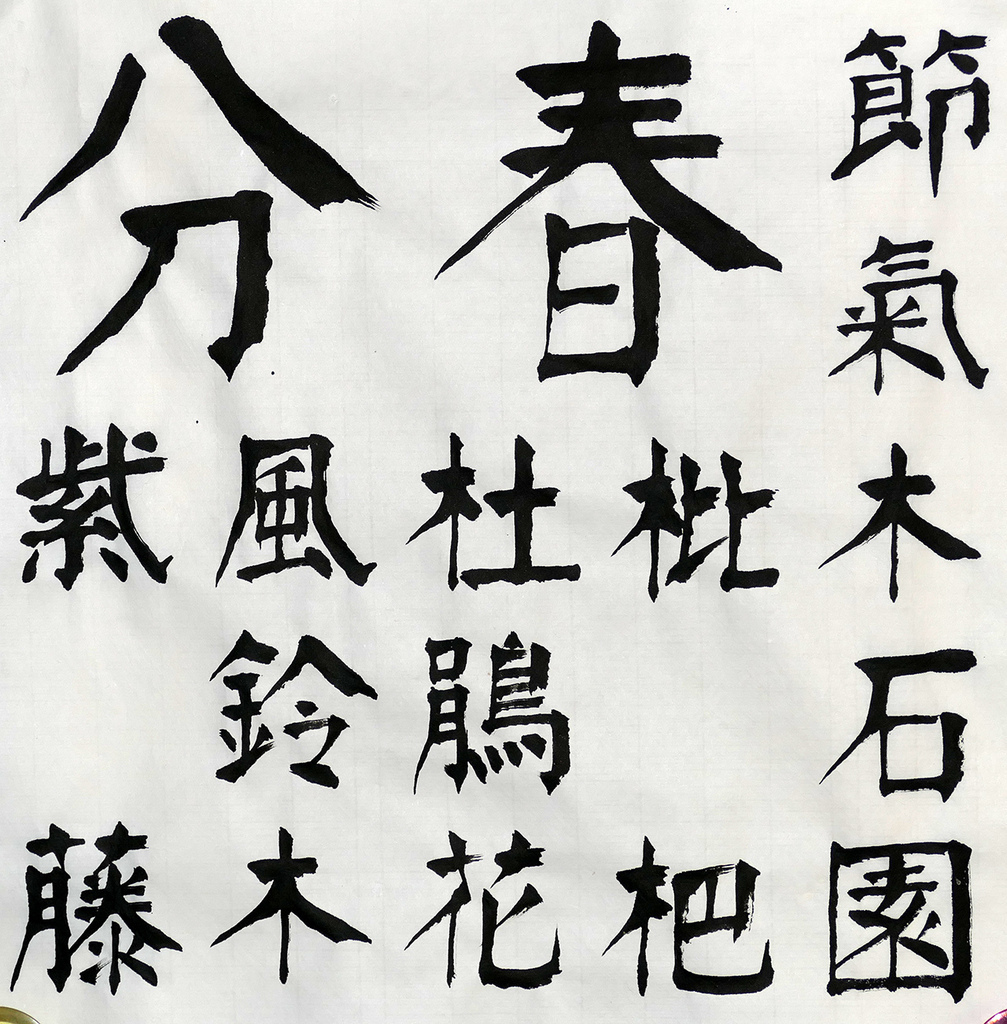 節氣
春分
木石園
枇杷
杜鵑花
風鈴木
紫藤